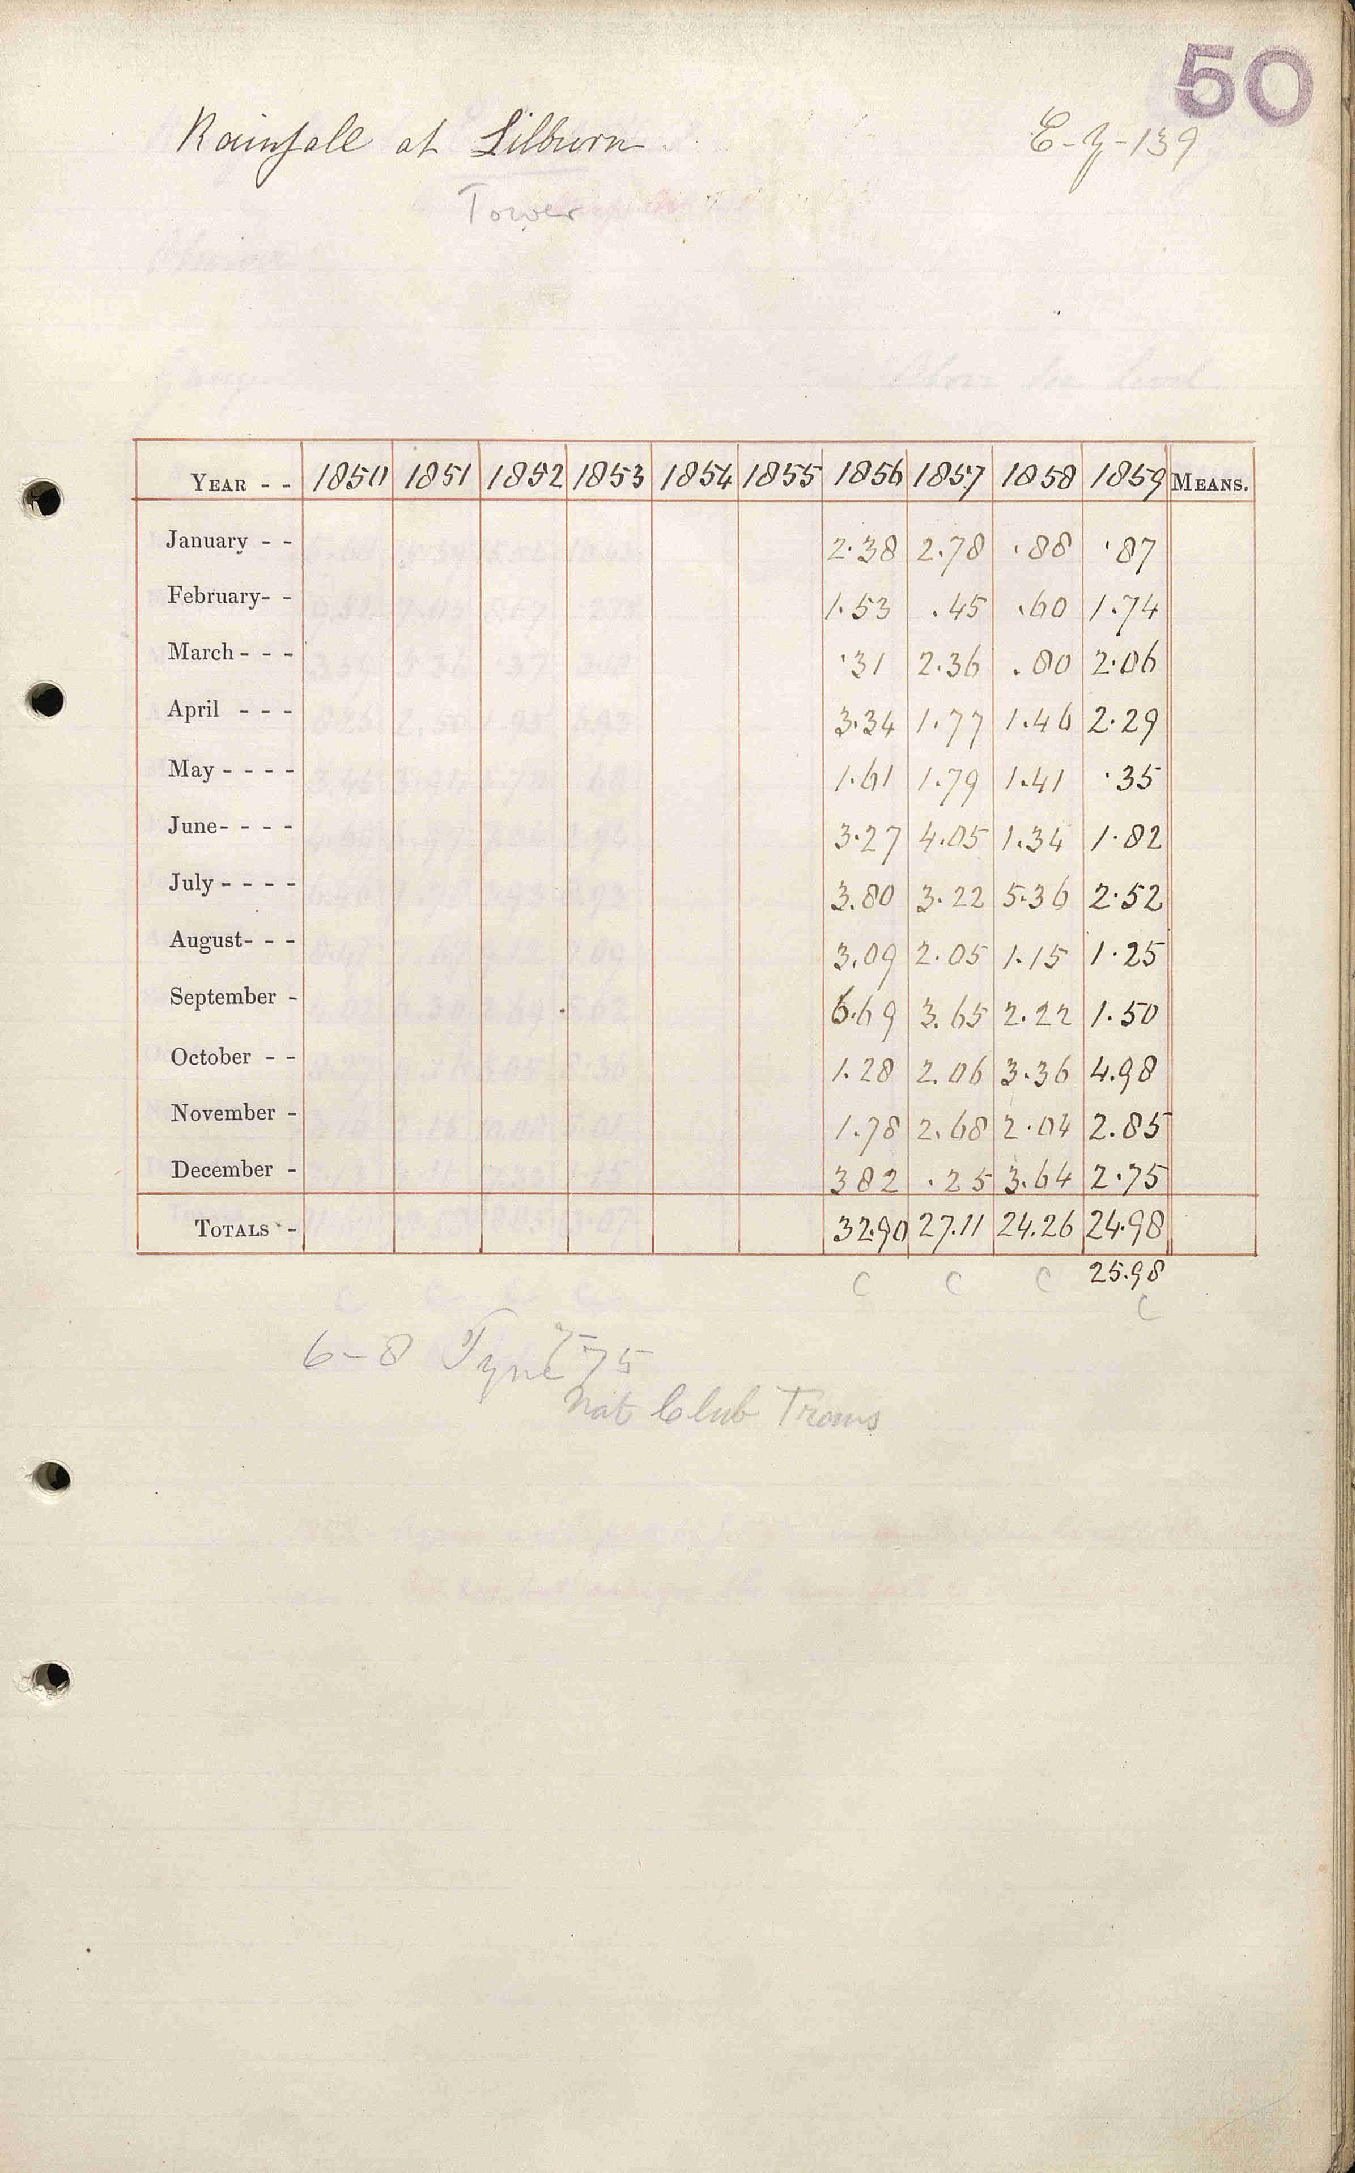 50
Rainfall at Lilburn E-Z-139
Tower
YEAR - - 1850 1851 1852 1853 1854 1855 1856 1857 1858 1859 MEANS.
January - - 2.38 2.78 .88 .87
February- - 1.53 .45 .60 1.74
March - - - .31 2.36 .80 2.06
April - - - 3.34 1.77 1.46 2.29
May - - - - 1.61 1.79 1.41 .35
June- - - - 3.27 4.05 1.34 1.82
July - - - - 3.80 3.22 5.36 2.52
August- - - 3.09 2.05 1.15 1.25
September - 6.69 3.65 2.22 1.50
October - - 1.28 2.06 3.36 4.98
November - 1.78 2.68 2.04 2.85
December - 3 82 .25 3.64 2.75
TOTALS - 32.90 27.11 24.26 24.98
25.98
C C C C
6-8 Tyne 75
Nat Club Trans